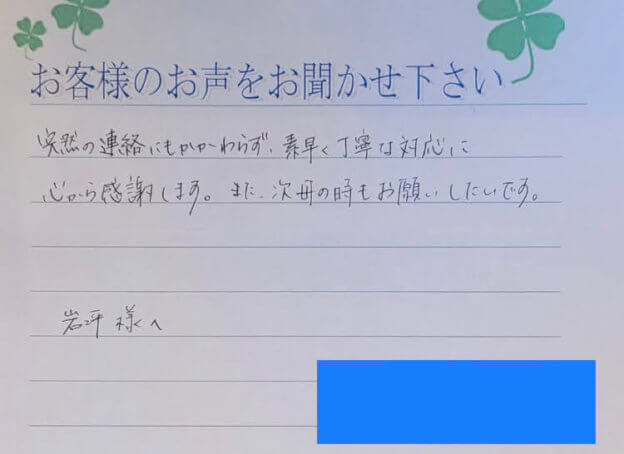 お客様のお声をお聞かせ下さい
突然の連絡にもかかわらず、素早く丁寧な対応に
心から感謝します。また、次毋の時もお願いしたいです。
岩坪 様へ